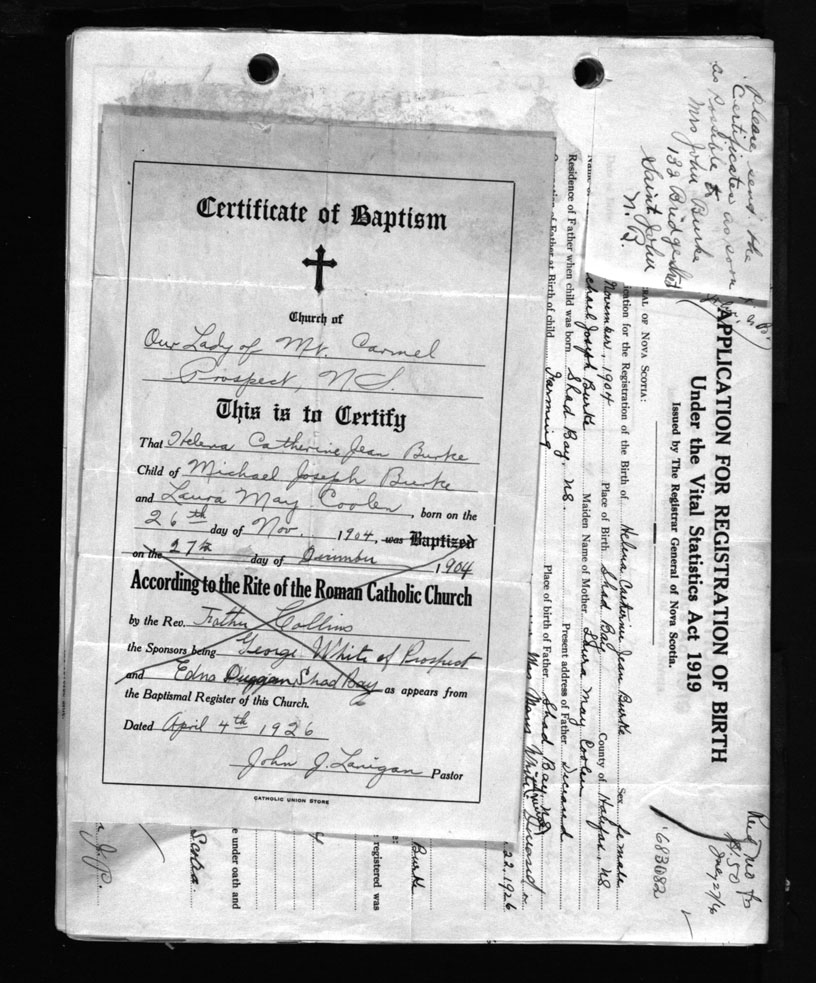 Certificate of Baptism
Church of
Our Lady of Mt. Carmel
Prospect, N.S.
This is to Certify
That Helena Catherine Jean Burke
Child of Michael Joseph Burke
and Laura May Coolen, born on the
26th day of Nov. 1904, was Baptized
on the 27th day of December 1904
According to the Rite of the Roman Catholic Church
by the Rev. Father Collins
the Sponsors being George White of Prospect
and Edna Duggan, Shad Bay as appears from
the Baptismal Register of this Church.
Dated April 4th 1926
John J. Lanigan Pastor
CATHOLIC UNION STORE
Please send the
Certificates as soon
as Possible to
Mrs John Burke
132 Bridge St
Saint John
N.B.
APPLICATION FOR REGISTRATION OF BIRTH
Under the Vital Statistics Act 1919
Issued by The Registrar General of Nova Scotia.
OF NOVA SCOTIA:
for the Registration of the Birth of Helena Catherine Jean Burke Sex female
November, 1904 Place of Birth Shad Bay County of Halifax, NS
Joseph Burke Maiden Name of Mother Laura May Coolen
Residence of Father when child was born Shad Bay, NS. Present address of Father Deceased
of Father at Birth of child Farming Place of birth of Father Shad Bay, NS
Mrs
22, 1926
Burke
registered was
e under oath and
Scotia.
J.P.
$1.50
683082